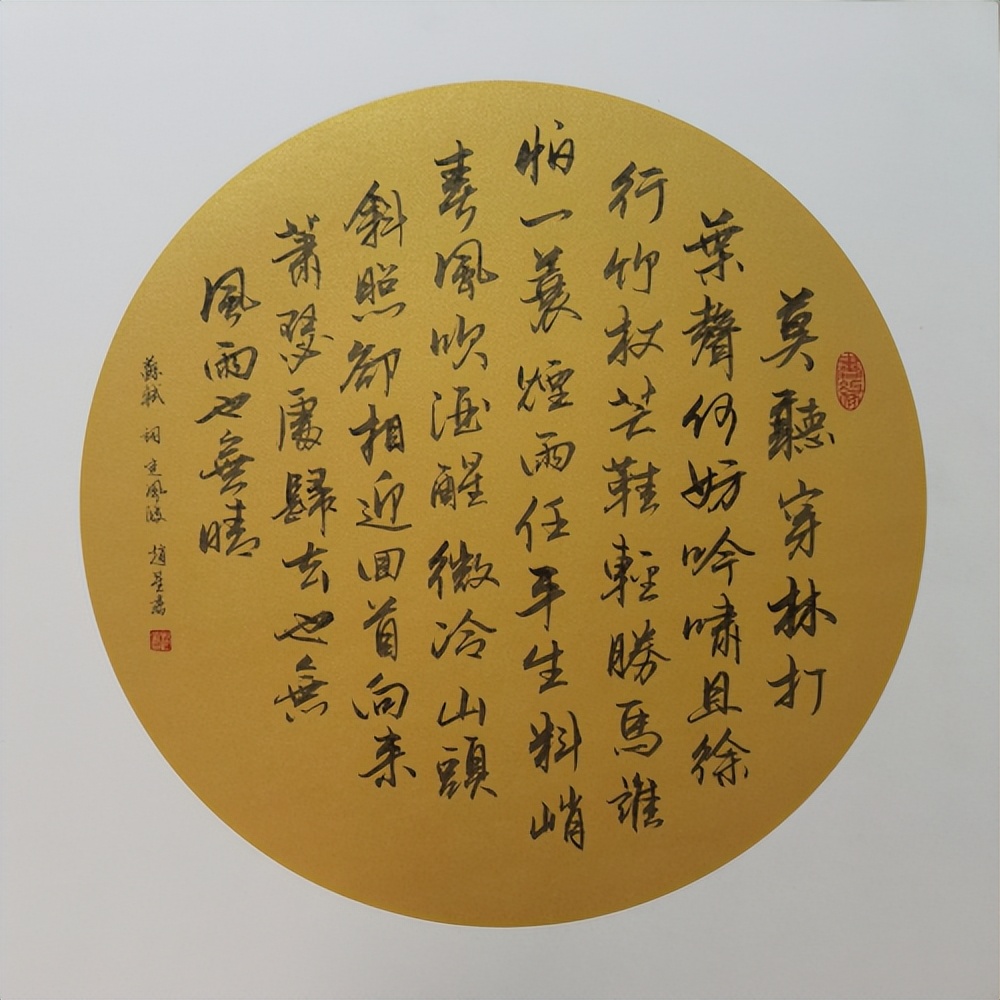 莫聽穿林打
葉聲何妨吟嘯且徐
行竹杖芒鞋輕勝馬誰
怕一蓑煙雨任平生料峭
春風吹酒醒微冷山頭
斜照卻相迎回首向来
蕭瑟處歸去也無
風雨也無晴
蘇軾 詞 定風波 趙